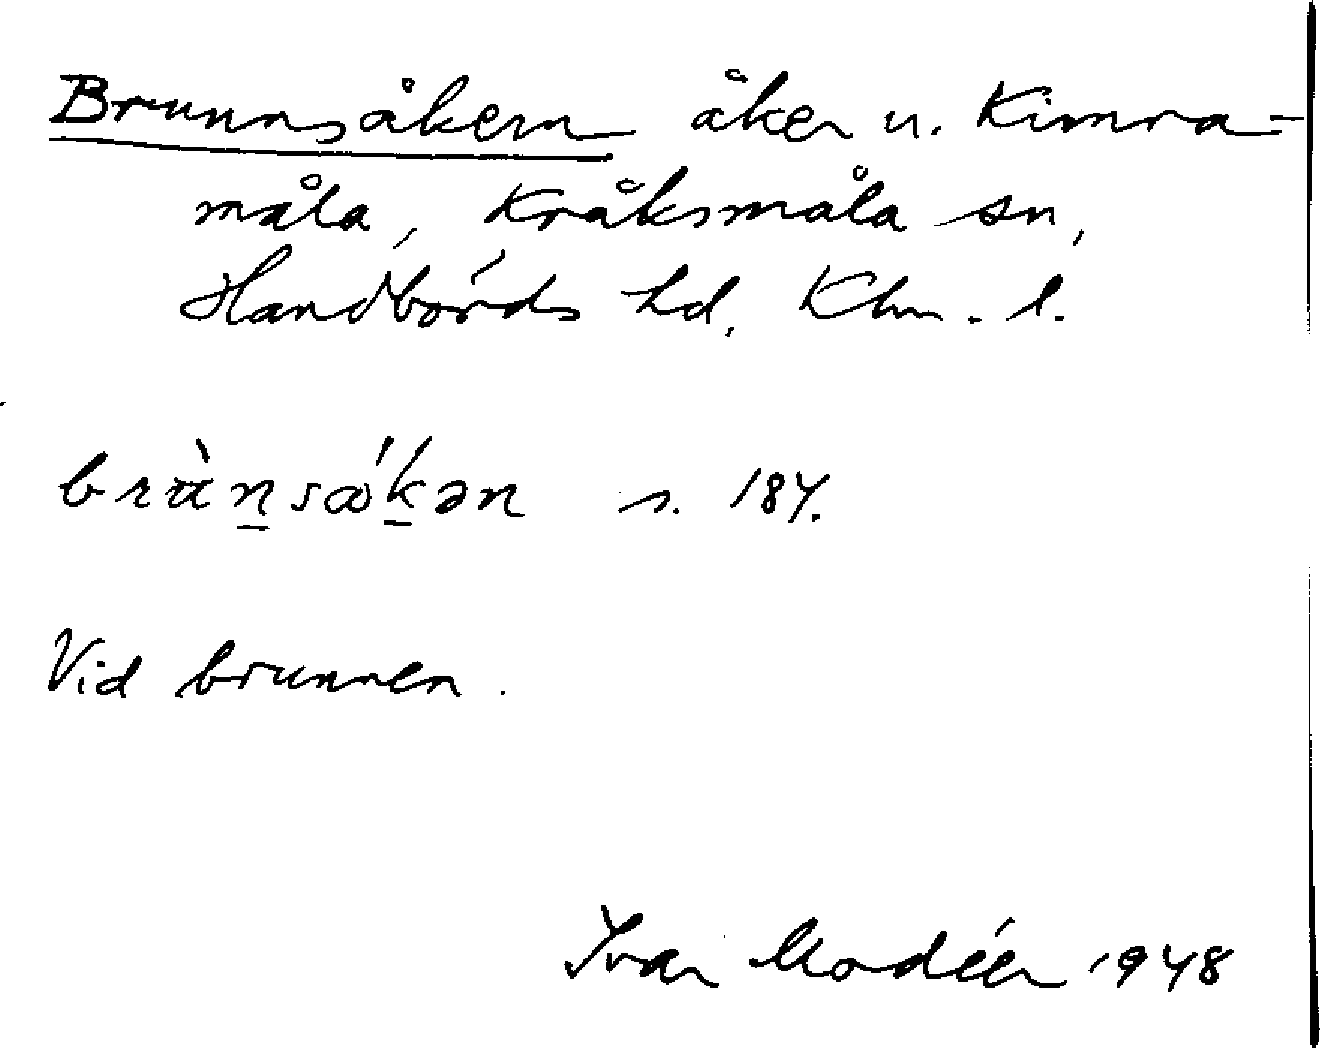 Brunnsåkern åker u. Kimra-
måla, Kråksmåla sn,
Handbörds hd, Klm. l.
brùn̲sǻk̲ən s. 184.
Vid brunnen.
Ivar Modéer 1948